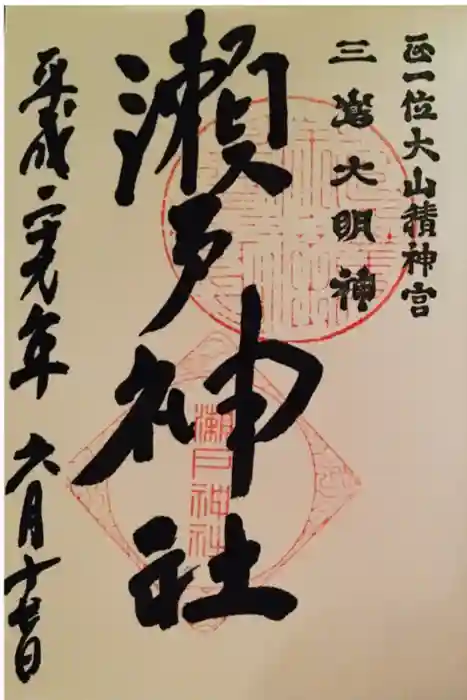 正一位大山積神宮
三嶌大明神
瀬戸神社
瀬戸神社
平成二十九年 六月十七日